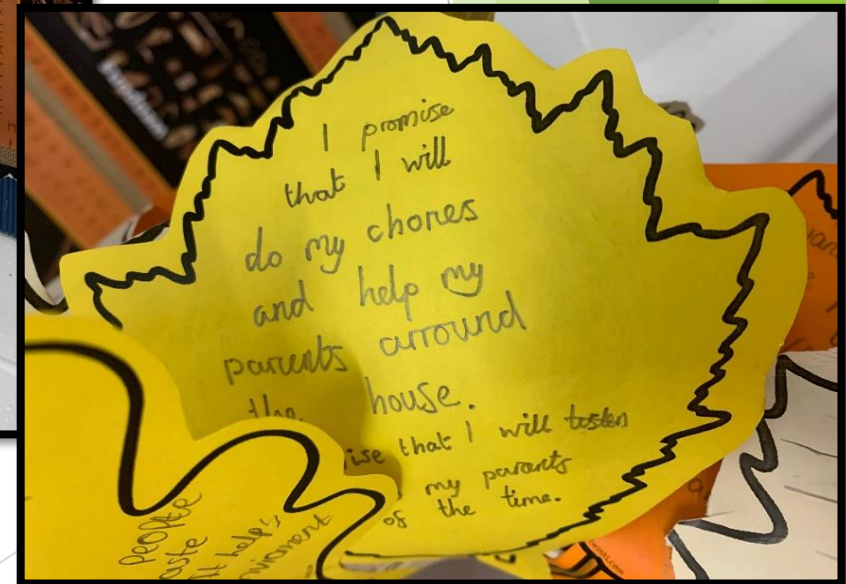 I promise
that I will
do my chores
and help my
parents arround
the house.
ise that I will listen
my parents
of the time.
people
aste
It help's
vironment